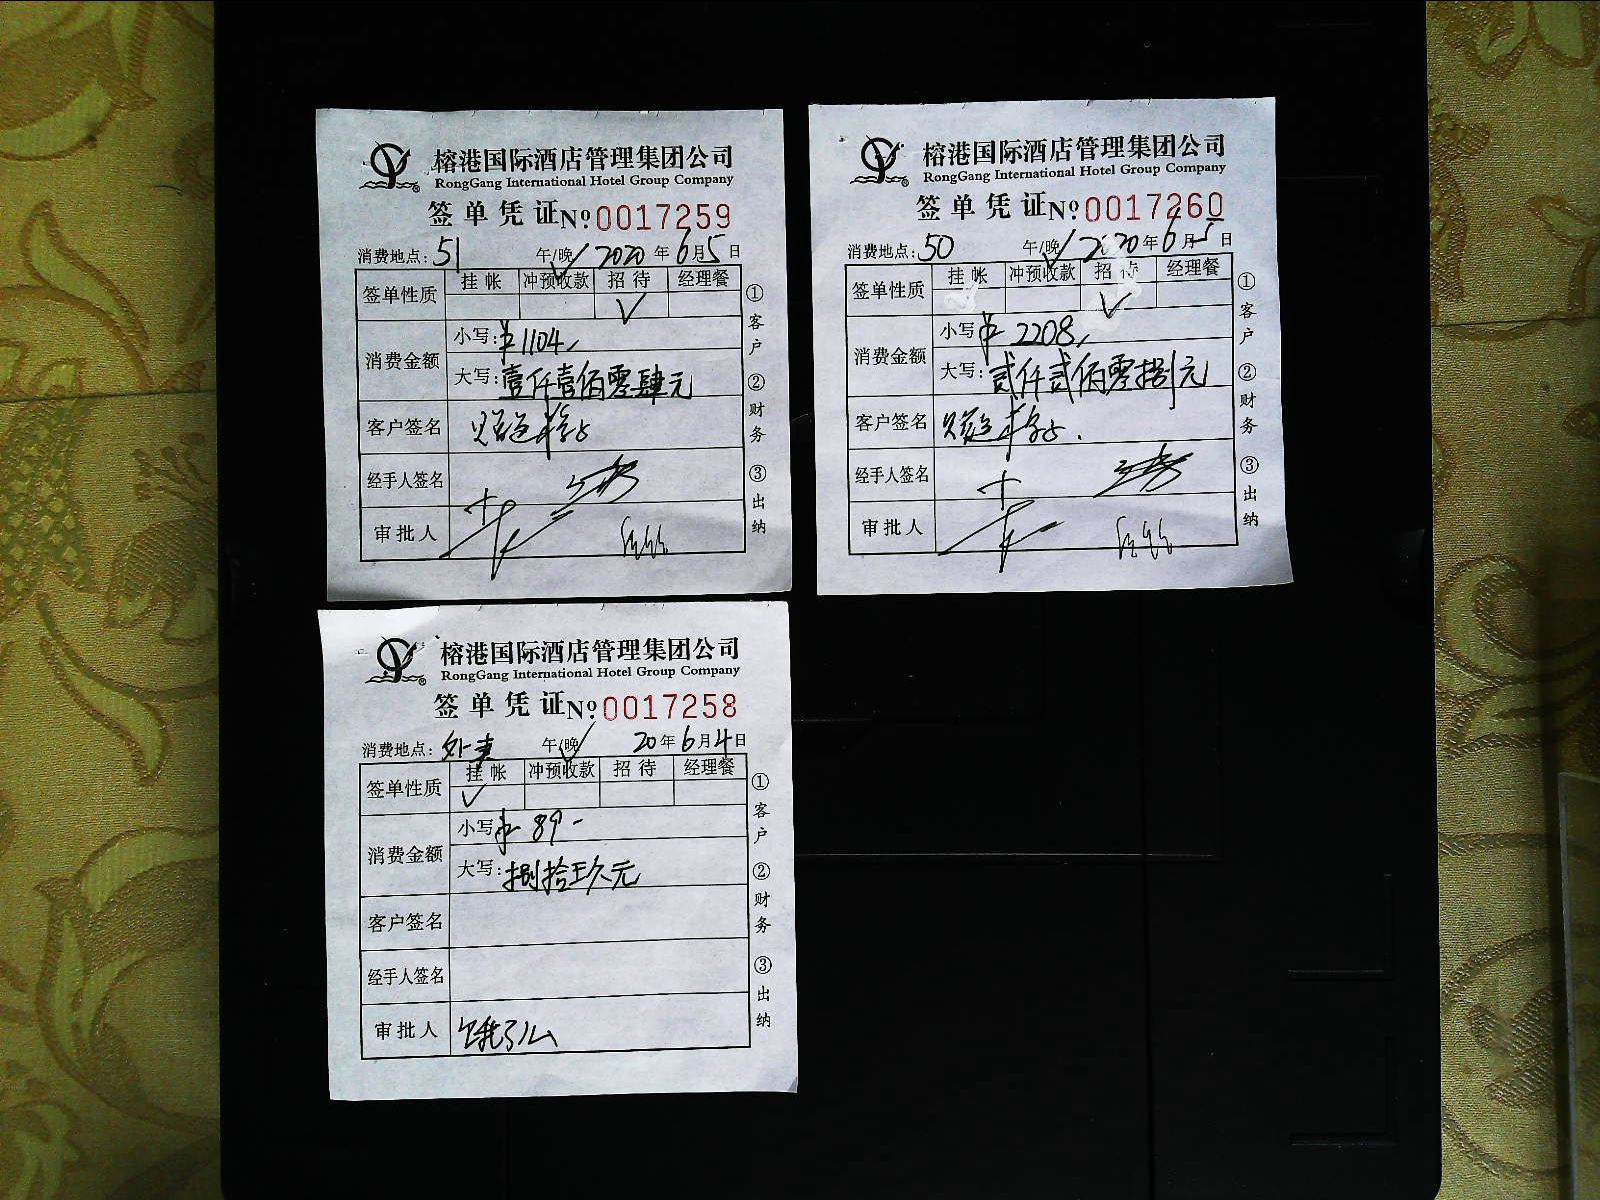 榕港国际酒店管理集团公司
RongGang International Hotel Group Company
签单凭证 №0017259
消费地点：51 午/晚 ✓ 2020年6月5日
签单性质 挂帐 冲预收款 招待 经理餐
✓
消费金额 小写：¥1104
大写：壹仟壹佰零肆元
客户签名
经手人签名
审批人
①客户 ②财务 ③出纳
榕港国际酒店管理集团公司
RongGang International Hotel Group Company
签单凭证 №0017260
消费地点：50 午/晚 ✓ 2020年6月5日
签单性质 挂帐 冲预收款 招待 经理餐
✓
消费金额 小写：¥2208
大写：贰仟贰佰零捌元
客户签名
经手人签名
审批人
①客户 ②财务 ③出纳
榕港国际酒店管理集团公司
RongGang International Hotel Group Company
签单凭证 №0017258
消费地点：外卖 午/晚 ✓ 20年6月4日
签单性质 挂帐 冲预收款 招待 经理餐
✓
消费金额 小写：¥89-
大写：捌拾玖元
客户签名
经手人签名
审批人 饿了么
①客户 ②财务 ③出纳